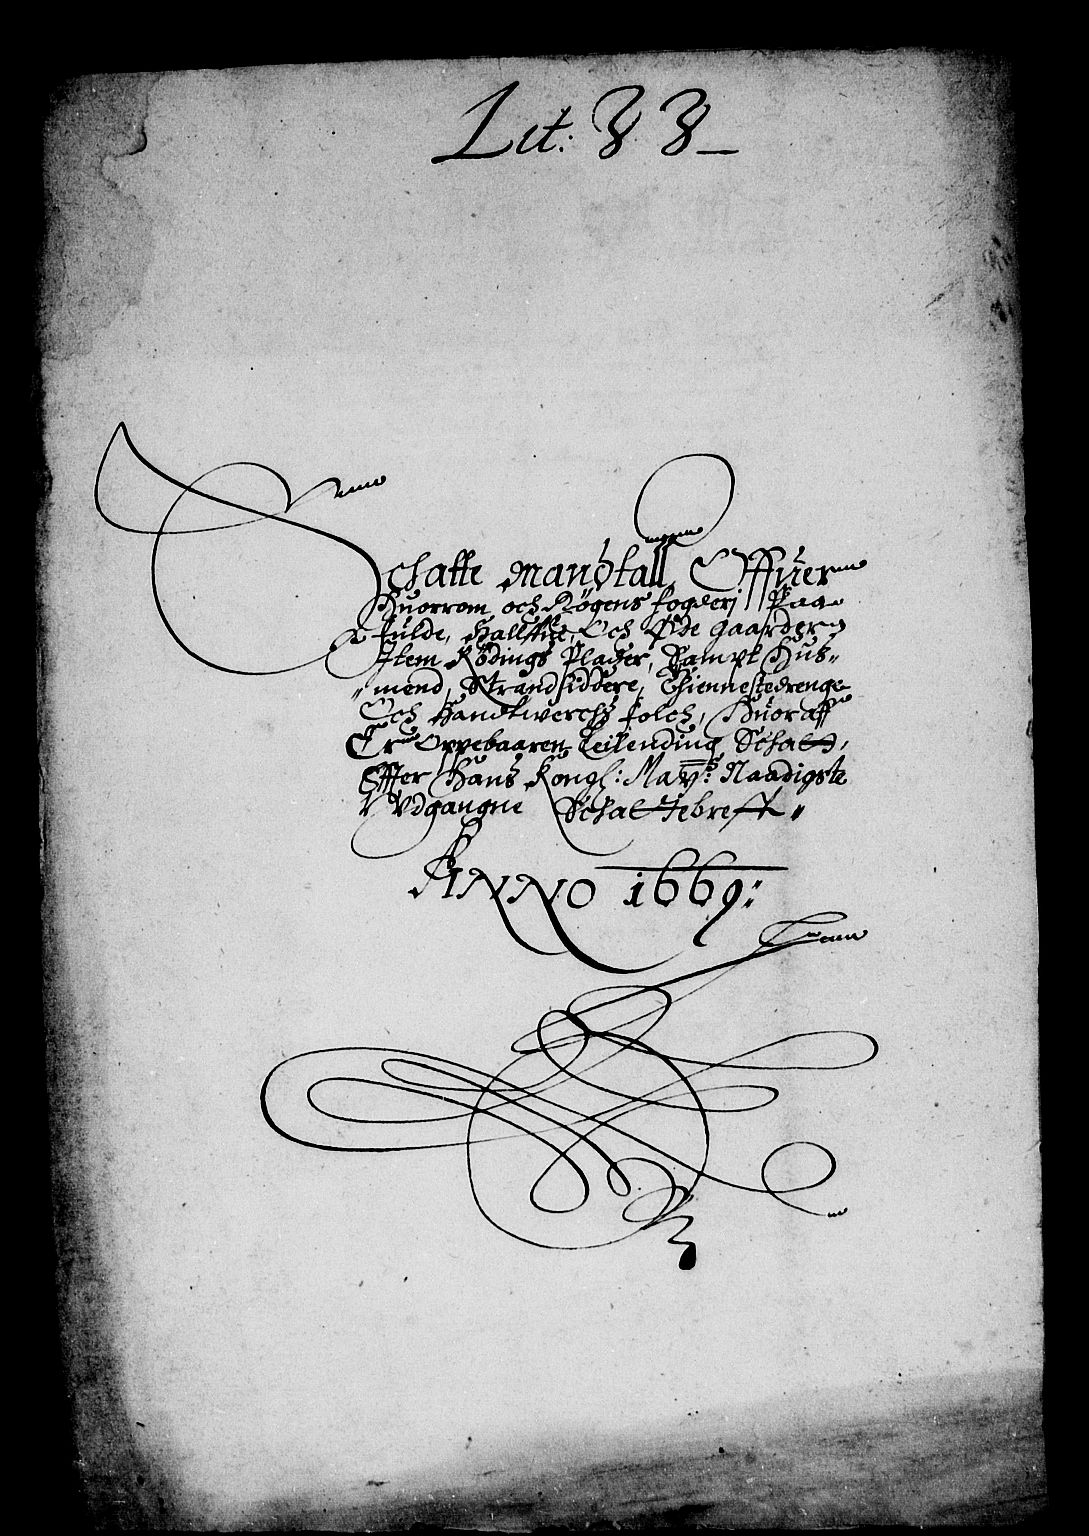 Lit: B B
Schatte Manstall, Offuer
Huorrom och Røgens fogderj Paa
fulde, Hallffue, Och Øde gaarder
Item Rødings Pladzer, Sampt Hus„
„mend, Strandsiddere, Thiennestedrenge
Och Handtwerchs folch, Huoraff
Er Oppebaaren Leilending Schatt,
Effter Hans Kongl: May:ts Naadigste
Vdgangne Schattebreff„
ANNO 1669: